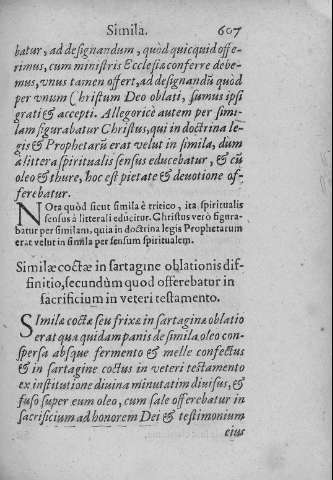 Simila. 607
batur, ad designandum, quòd quicquid offe-
rimus, cum ministris Ecclesiæ conferre debe-
mus, vnus tamen offert, ad designandū quòd
per vnum Christum Deo oblati, sumus ipsi
grati & accepti. Allegoricè autem per simi-
lam figurabatur Christus, qui in doctrina le-
gis & Prophetarū erat velut in simila, dum
à littera spiritualis sensus educebatur, & cū
oleo & thure, hoc est pietate & deuotione of-
ferebatur.
NOta quòd sicut simila è tritico, ita spiritualis
sensus à litterali educitur. Christus verò figura-
batur per similam, quia in doctrina legis Prophetarum
erat velut in simila per sensum spiritualem.
Similæ coctæ in sartagine oblationis dif-
finitio, secundùm quod offerebatur in
sacrificium in veteri testamento.
SImilæ coctæ seu frixæ in sartagine oblatio
erat quædam panis de simila oleo con-
spersa absque fermento & melle confectus
& in sartagine coctus in veteri testamento
ex institutione diuina minutatim diuisus, &
fuso super eum oleo, cum sale offerebatur in
sacrificium ad honorem Dei & testimonium
eius